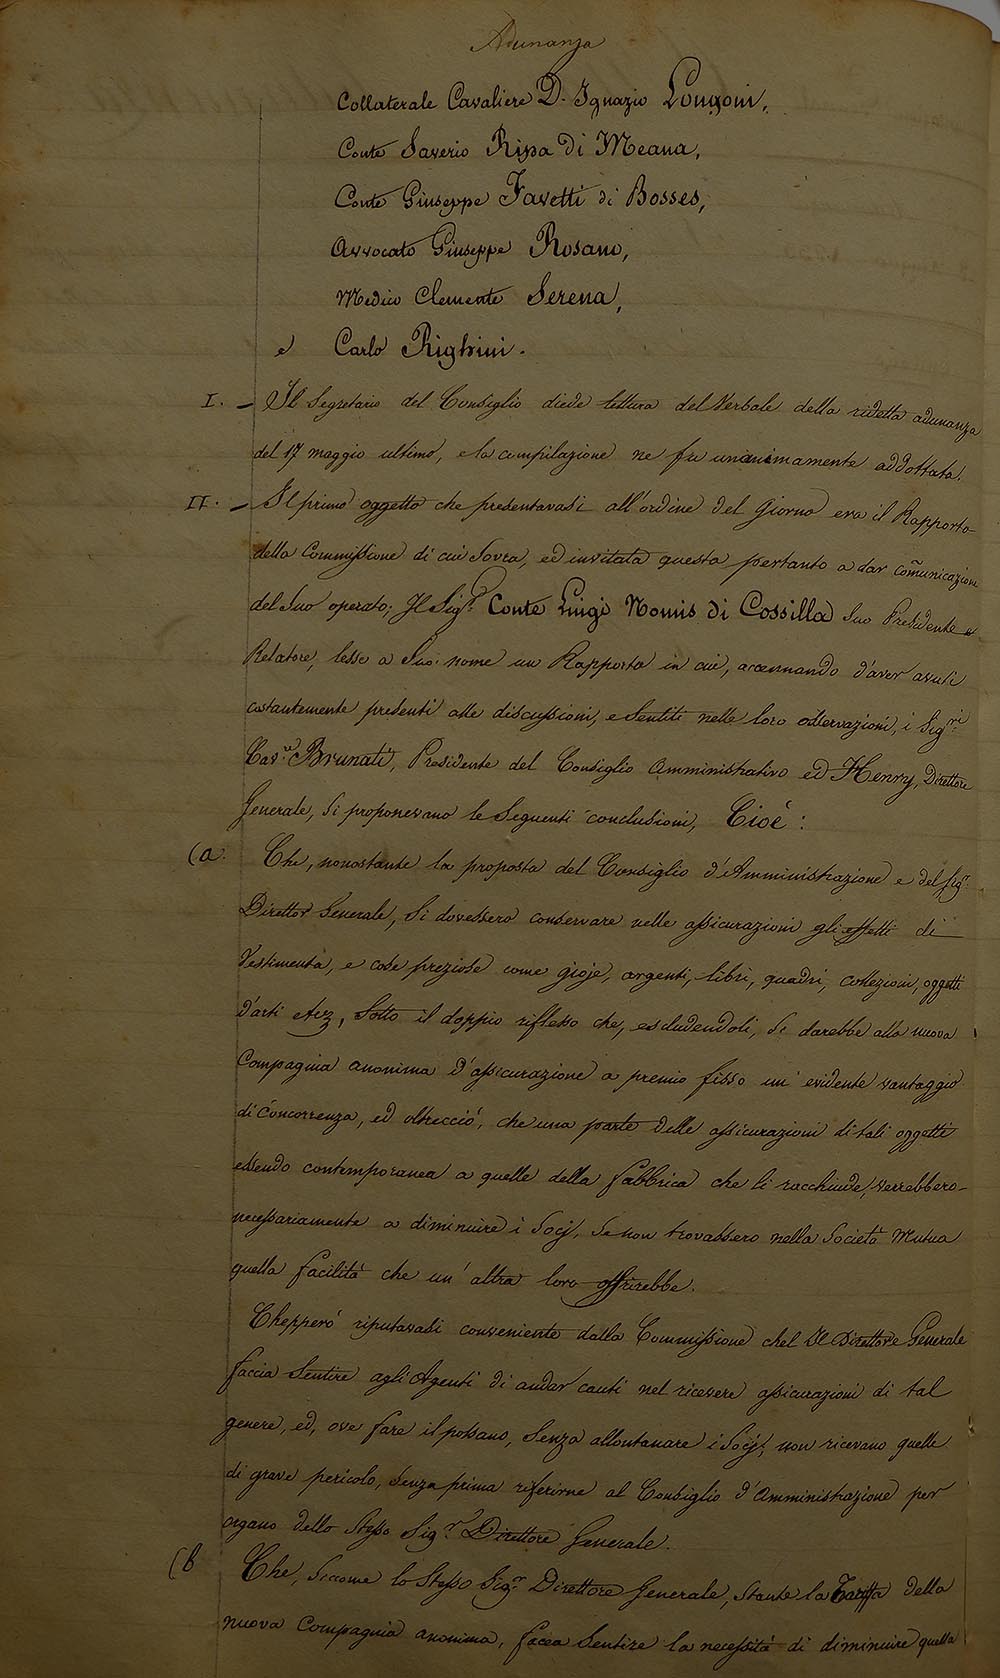 Adunanza
Collaterale Cavaliere D. Ignazio Longoni,
Conte Saverio Ripa di Meana,
Conte Giuseppe Favetti di Bosses,
Avvocato Giuseppe Rosano,
Medico Clemente Serena,
e Carlo Righini.
I. - Il Segretario del Consiglio diede lettura del Verbale della ridetta adunanza
del 17 maggio ultimo, e la compilazione ne fu unanimamente addottata.
II. - Il primo oggetto che presentavasi all'ordine del Giorno era il Rapporto
della Commissione di cui Sovra, ed invitata questa pertanto a dar comunicazione
del Suo operato; Il Sig.r Conte Luigi Nomis di Cossilla Suo Presidente e
Relatore, lesse a Suo nome un Rapporto in cui, accennando d'aver avuti
costantemente presenti alle discussioni, e Sentiti nelle loro osservazioni, i Sig.ri
Cav.re Brunati, Presidente del Consiglio Amministrativo ed Henry, Direttore
Generale, Si proponevano le Seguenti conclusioni, Cioè:
(a. Che, nonostante la proposta del Consiglio d'Amministrazione e del Sig.r
Direttor Generale, Si dovessero conservare nelle assicurazioni gli effetti di
Vestimenta, e cose preziose come gioje, argenti, libri, quadri, collezioni, oggetti
d'arti , Sotto il doppio riflesso che, escludendoli, Si darebbe alla nuova
Compagnia anonima d'assicurazione a premio fisso un' evidente vantaggio
di Concorrenza, ed oltrecciò, che una parte delle assicurazioni di tali oggetti
essendo contemporanea a quelle della fabbrica che li racchiude, verrebbero
necessariamente a diminuire i Socj, Se non trovassero nella Società Mutua
quella facilità che un' altra loro offrirebbe.
Chepperò riputavasi conveniente dalla Commissione chel Il Direttore Generale
faccia Sentire agli Agenti di andar cauti nel ricevere assicurazioni di tal
genere, ed, ove fare il possano, Senza allontanare i Socj, non ricevano quelle
di grave pericolo, Senza prima riferirne al Consiglio d'Amministrazione per
organo dello Stesso Sig.r Direttore Generale.
(b Che, Siccome lo Stesso Sig.r Direttore Generale, Stante la Tariffa della
nuova Compagnia anonima, facea Sentire la necessità di diminuire quella